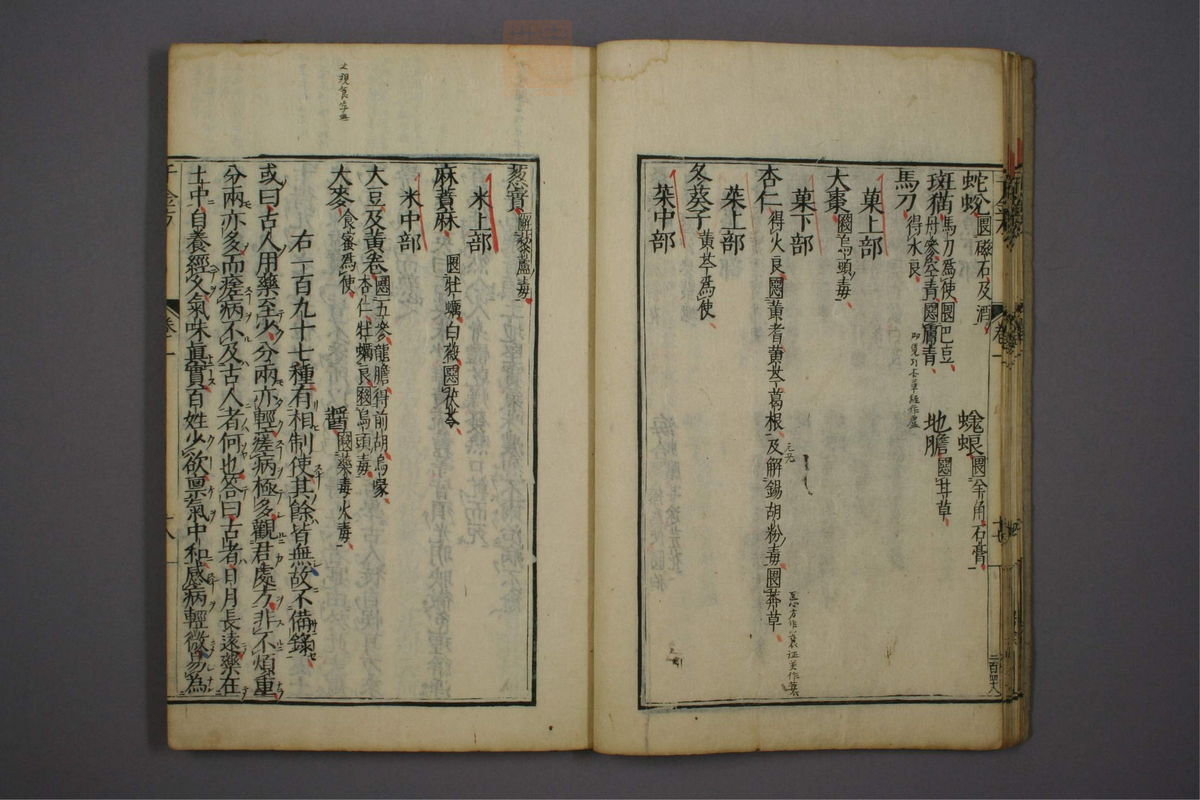 蛇蛻畏磁石及酒
蜣蜋畏羊角石膏
斑猫馬刀爲使畏巴豆
丹參空青惡膚青
地膽惡甘草
馬刀得水良
菓上部
大棗惡烏頭毒
菓下部
杏仁得火良惡黃耆黃芩葛根及解錫胡粉毒畏莽草
菜上部
冬葵子黃芩爲使
菜中部
葱實解藜蘆毒
米上部
麻蕡麻 畏牡蠣白薇惡茯苓
米中部
大豆及黃卷惡五參龍膽得前胡烏喙
杏仁牡蠣良惡烏頭毒
大麥食蜜爲使
醬惡藥毒火毒
右一百九十七種有相制使其餘皆無故不備錄
或曰古人用藥至少分兩亦輕瘥病極多觀君處方非不煩重
分兩亦多而瘥病不及古人者何也答曰古者日月長遠藥在
土中自養經久氣味眞實百姓少欲禀氣中和感病輕微易爲
卷一